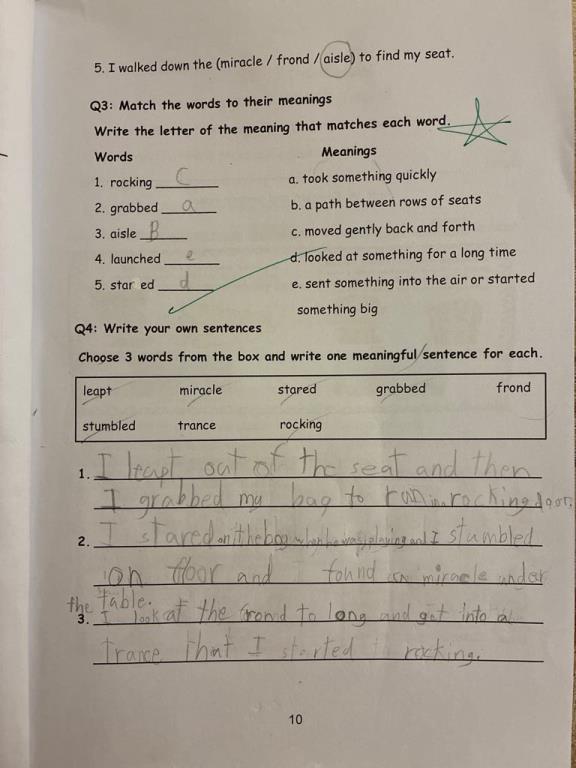 5. I walked down the (miracle / frond / aisle) to find my seat.
Q3: Match the words to their meanings
Write the letter of the meaning that matches each word.
Words Meanings
1. rocking C a. took something quickly
2. grabbed a b. a path between rows of seats
3. aisle B c. moved gently back and forth
4. launched e d. looked at something for a long time
5. star ed d e. sent something into the air or started
something big
Q4: Write your own sentences
Choose 3 words from the box and write one meaningful sentence for each.
leapt miracle stared grabbed frond
stumbled trance rocking
1. I leapt out of the seat and then
I grabbed my bag to run in rocking door.
2. I stared on the boy when he was playing and I stumbled
on floor and I found an miracle under
the table.
3. I look at the frond to long and got into a
trance that I started to rocking.
10